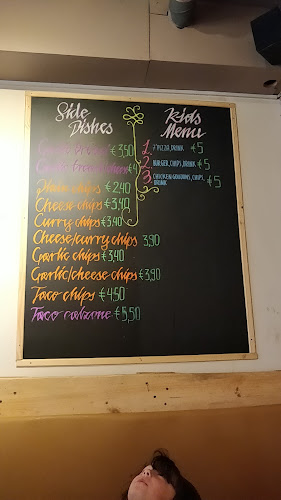 Side
Dishes
Garlic Bread €3,50
Garlic bread cheese €4
Plain chips €2,40
Cheese chips €3,40
Curry chips €3,40
Cheese/curry chips 3,90
Garlic chips €3,40
Garlic/cheese chips €3,90
Taco chips €4,50
Taco calzone €5,50
Kids
Menu
1. 7"PIZZA, DRINK €5
2 BURGER, CHIPS, DRINK €5
3 CHICKEN GOUJONS, CHIPS, €5
DRINK